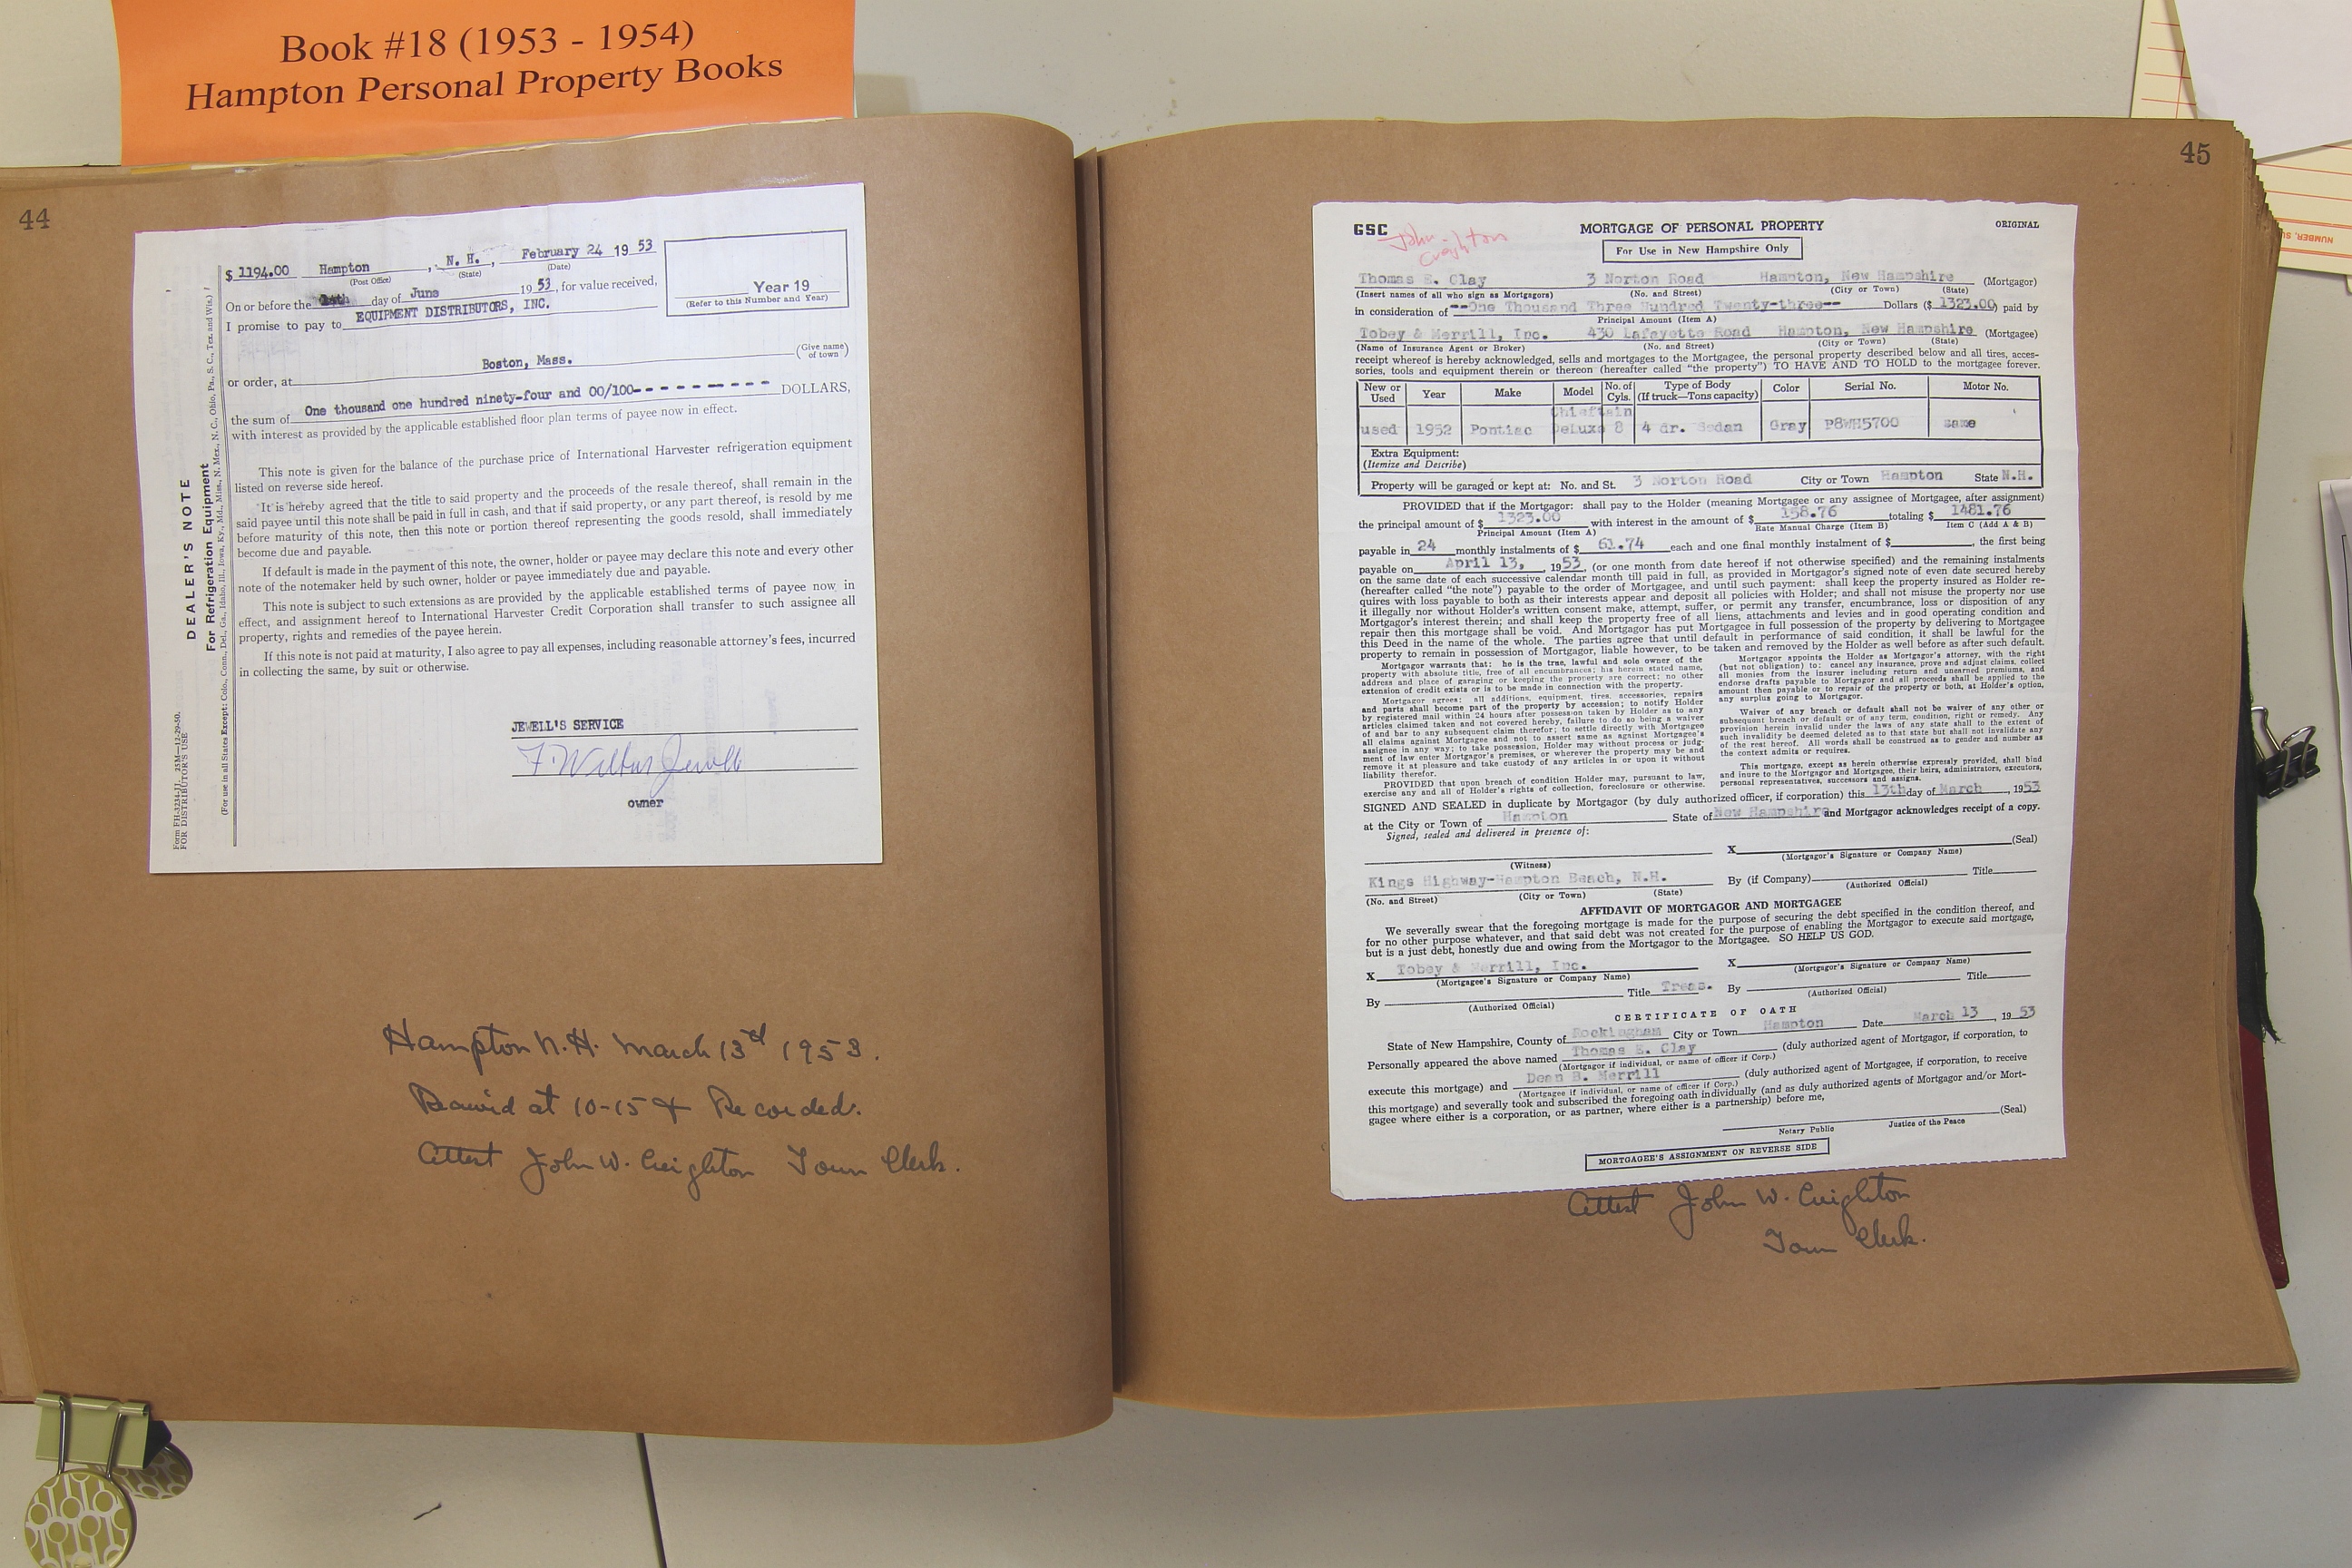 Book #18 (1953 - 1954)
Hampton Personal Property Books
44
DEALER'S NOTE
For Refrigeration Equipment
(For use in all States Except: Colo., Conn., Del., Ga., Idaho, Ill., Iowa, Ky., Md., Miss., N. Mex., N. C., Ohio, Pa., S. C., Tex. and Wis.)
Form FH-3234-JJ. 25M—12-29-50.
FOR DISTRIBUTOR'S USE
$ 1194.00 Hampton, N. H., February 24 19 53
(Post Office) (State) (Date)
Year 19
(Refer to this Number and Year)
On or before the day of June 19 53, for value received,
I promise to pay to EQUIPMENT DISTRIBUTORS, INC.
or order, at Boston, Mass. (Give name of town)
the sum of One thousand one hundred ninety-four and 00/100- - - - - - - - - - DOLLARS,
with interest as provided by the applicable established floor plan terms of payee now in effect.
This note is given for the balance of the purchase price of International Harvester refrigeration equipment
listed on reverse side hereof.
It is hereby agreed that the title to said property and the proceeds of the resale thereof, shall remain in the
said payee until this note shall be paid in full in cash, and that if said property, or any part thereof, is resold by me
before maturity of this note, then this note or portion thereof representing the goods resold, shall immediately
become due and payable.
If default is made in the payment of this note, the owner, holder or payee may declare this note and every other
note of the notemaker held by such owner, holder or payee immediately due and payable.
This note is subject to such extensions as are provided by the applicable established terms of payee now in
effect, and assignment hereof to International Harvester Credit Corporation shall transfer to such assignee all
property, rights and remedies of the payee herein.
If this note is not paid at maturity, I also agree to pay all expenses, including reasonable attorney's fees, incurred
in collecting the same, by suit or otherwise.
JEWELL'S SERVICE
F. Wilbur Jewell
owner
Hampton N.H. March 13d 1953.
Received at 10-15 & Recorded.
Attest John W. Creighton Town Clerk.
45
GSC John Creighton MORTGAGE OF PERSONAL PROPERTY ORIGINAL
For Use in New Hampshire Only
Thomas E. Clay 3 Norton Road Hampton, New Hampshire (Mortgagor)
(Insert names of all who sign as Mortgagors) (No. and Street) (City or Town) (State)
in consideration of --One Thousand Three Hundred Twenty-three-- Dollars ($ 1323.00) paid by
Principal Amount (Item A)
Tobey & Merrill, Inc. 430 Lafayette Road Hampton, New Hampshire (Mortgagee)
(Name of Insurance Agent or Broker) (No. and Street) (City or Town) (State)
receipt whereof is hereby acknowledged, sells and mortgages to the Mortgagee, the personal property described below and all tires, acces-
sories, tools and equipment therein or thereon (hereafter called "the property") TO HAVE AND TO HOLD to the mortgagee forever.
New or Used Year Make Model No. of Cyls. Type of Body (If truck—Tons capacity) Color Serial No. Motor No.
used 1952 Pontiac Chieftain DeLuxe 8 4 dr. Sedan Gray P8WH5700 same
Extra Equipment:
(Itemize and Describe)
Property will be garaged or kept at: No. and St. 3 Norton Road City or Town Hampton State N.H.
PROVIDED that if the Mortgagor: shall pay to the Holder (meaning Mortgagee or any assignee of Mortgagee, after assignment)
the principal amount of $ 1323.00 with interest in the amount of $ 158.76 totaling $ 1481.76
Principal Amount (Item A) Rate Manual Charge (Item B) Item C (Add A & B)
payable in 24 monthly instalments of $ 61.74 each and one final monthly instalment of $ , the first being
payable on April 13, 1953, (or one month from date hereof if not otherwise specified) and the remaining instalments
on the same date of each successive calendar month till paid in full, as provided in Mortgagor's signed note of even date secured hereby
(hereafter called "the note") payable to the order of Mortgagee, and until such payment: shall keep the property insured as Holder re-
quires with loss payable to both as their interests appear and deposit all policies with Holder; and shall not misuse the property nor use
it illegally nor without Holder's written consent make, attempt, suffer, or permit any transfer, encumbrance, loss or disposition of any
Mortgagor's interest therein; and shall keep the property free of all liens, attachments and levies and in good operating condition and
repair then this mortgage shall be void. And Mortgagor has put Mortgagee in full possession of the property by delivering to Mortgagee
this Deed in the name of the whole. The parties agree that until default in performance of said condition, it shall be lawful for the
property to remain in possession of Mortgagor, liable however, to be taken and removed by the Holder as well before as after such default.
Mortgagor warrants that: he is the true, lawful and sole owner of the
property with absolute title, free of all encumbrances; his herein stated name,
address and place of garaging or keeping the property are correct; no other
extension of credit exists or is to be made in connection with the property.
Mortgagor agrees: all additions, equipment, tires, accessories, repairs
and parts shall become part of the property by accession; to notify Holder
by registered mail within 24 hours after possession taken by Holder as to any
articles claimed taken and not covered hereby, failure to do so being a waiver
of and bar to any subsequent claim therefor; to settle directly with Mortgagee
all claims against Mortgagee and not to assert same as against Mortgagee's
assignee in any way; to take possession, Holder may without process or judg-
ment of law enter Mortgagor's premises, or wherever the property may be and
remove it at pleasure and take custody of any articles in or upon it without
liability therefor.
PROVIDED that upon breach of condition Holder may, pursuant to law,
exercise any and all of Holder's rights of collection, foreclosure or otherwise.
Mortgagor appoints the Holder as Mortgagor's attorney, with the right
(but not obligation) to: cancel any insurance, prove and adjust claims, collect
all monies from the insurer including return and unearned premiums, and
endorse drafts payable to Mortgagor and all proceeds shall be applied to the
amount then payable or to repair of the property or both, at Holder's option,
any surplus going to Mortgagor.
Waiver of any breach or default shall not be waiver of any other or
subsequent breach or default or of any term, condition, right or remedy. Any
provision herein invalid under the laws of any state shall to the extent of
such invalidity be deemed deleted as to that state but shall not invalidate any
of the rest hereof. All words shall be construed as to gender and number as
the context admits or requires.
This mortgage, except as herein otherwise expressly provided, shall bind
and inure to the Mortgagor and Mortgagee, their heirs, administrators, executors,
personal representatives, successors and assigns.
SIGNED AND SEALED in duplicate by Mortgagor (by duly authorized officer, if corporation) this 13th day of March, 1953
at the City or Town of Hampton State of New Hampshire and Mortgagor acknowledges receipt of a copy.
Signed, sealed and delivered in presence of:
X (Seal)
(Witness) (Mortgagor's Signature or Company Name)
Kings Highway-Hampton Beach, N.H. By (if Company) Title
(No. and Street) (City or Town) (State) (Authorized Official)
AFFIDAVIT OF MORTGAGOR AND MORTGAGEE
We severally swear that the foregoing mortgage is made for the purpose of securing the debt specified in the condition thereof, and
for no other purpose whatever, and that said debt was not created for the purpose of enabling the Mortgagor to execute said mortgage,
but is a just debt, honestly due and owing from the Mortgagor to the Mortgagee. SO HELP US GOD.
X Tobey & Merrill, Inc. X
(Mortgagee's Signature or Company Name) (Mortgagor's Signature or Company Name)
By Title Treas. By Title
(Authorized Official) (Authorized Official)
CERTIFICATE OF OATH
State of New Hampshire, County of Rockingham City or Town Hampton Date March 13, 19 53
Personally appeared the above named Thomas E. Clay (duly authorized agent of Mortgagor, if corporation, to
(Mortgagor if individual, or name of officer if Corp.)
execute this mortgage) and Dean B. Merrill (duly authorized agent of Mortgagee, if corporation, to receive
(Mortgagee if individual, or name of officer if Corp.)
this mortgage) and severally took and subscribed the foregoing oath individually (and as duly authorized agents of Mortgagor and/or Mort-
gagee where either is a corporation, or as partner, where either is a partnership) before me,
(Seal)
Notary Public Justice of the Peace
MORTGAGEE'S ASSIGNMENT ON REVERSE SIDE
Attest John W. Creighton
Town Clerk.